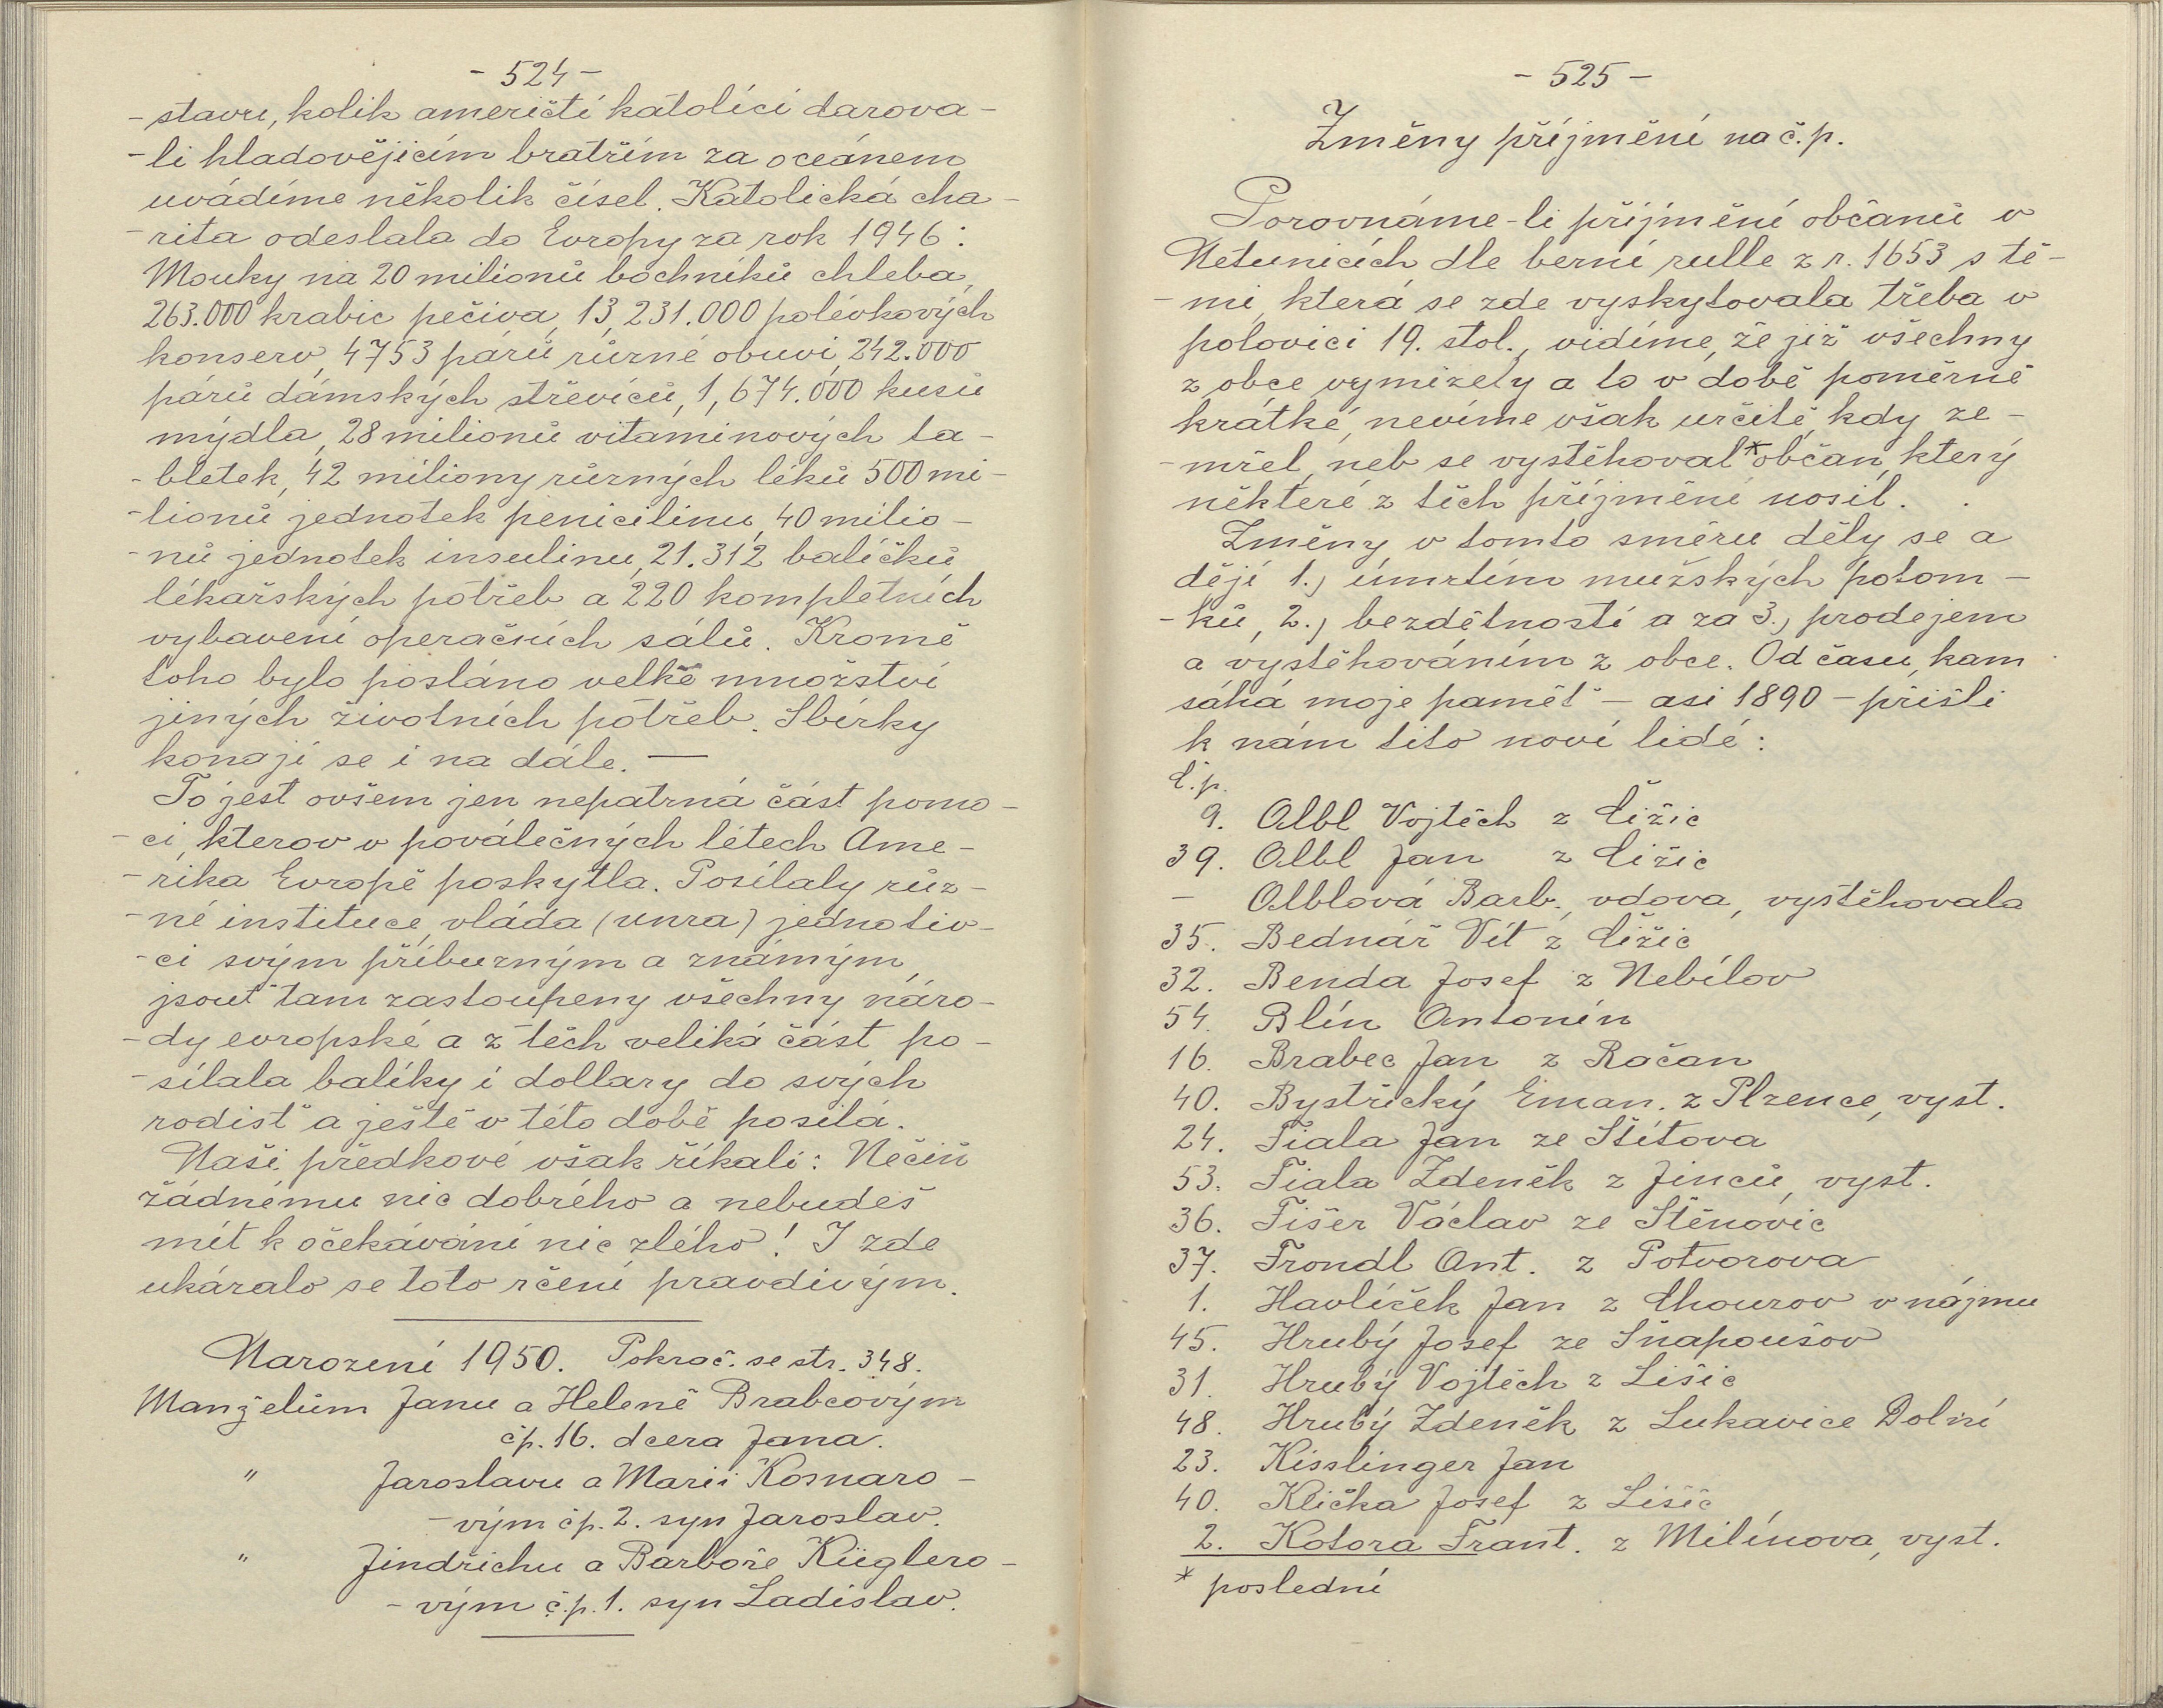 - 524 -
- stavu, kolik američtí katolíci darova -
- li hladovějícím bratřím za oceánem
uvádíme několik čísel. Katolická cha -
- rita odeslala do Evropy za rok 1946:
Mouky na 20 milionů bochníků chleba,
263.000 krabic pečiva, 13,231.000 polévkových
konserv, 4753 párů různé obuvi, 242.000
párů dámských střevíců, 1,674.000 kusů
mýdla, 28 milionů vitaminových ta -
- bletek, 42 miliony různých léků 500 mi -
- lionů jednotek penicilinu, 40 milio -
- nů jednotek insulinu, 21.312 balíčků
lékařských potřeb a 220 kompletních
vybavení operačních sálů. Kromě
toho bylo posláno velké množství
jiných životních potřeb. Sbírky
konají se i na dále. —
To jest ovšem jen nepatrná část pomo -
- ci, kterou v poválečných létech Ame -
- rika Evropě poskytla. Posílaly růz -
- né instituce, vláda (unra) jednotliv -
- ci svým příbuzným a známým,
jsouť tam zastoupeny všechny náro -
- dy evropské a z těch veliká část po -
- sílala balíky i dollary do svých
rodišť a ještě v této době posílá.
Naši předkové však říkali: Nečiň
žádnému nic dobrého a nebudeš
mít k očekávání nic zlého! I zde
ukázalo se toto rčení pravdivým.
Narození 1950. Pokrač. se str. 348.
Manželům Janu a Heleně Brabcovým
čp. 16. dcera Jana.
" Jaroslavu a Marii Kosnaro -
- vým čp. 2. syn Jaroslav.
" Jindřichu a Barboře Küglero -
- vým č.p. 1. syn Ladislav.
- 525 -
Změny příjmění na č.p.
Porovnáme-li příjmění občanů v
Netunicích dle berní rulle z r. 1653 s tě -
- mi, která se zde vyskytovala třeba v
polovici 19. stol., vidíme, že již všechny
z obce vymizely a to v době poměrně
krátké, nevíme však určitě, kdy ze -
- mřel, neb se vystěhoval * občan, který
některé z těch příjmění nosil.
Změny v tomto směru děly se a
dějí 1.) úmrtím mužských potom -
- ků, 2.) bezdětností a za 3.) prodejem
a vystěhováním z obce. Od času, kam
sáhá moje paměť - asi 1890 - přišli
k nám tito noví lidé:
č.p.
9. Albl Vojtěch z Čižic
39. Albl Jan z Čižic
- Alblová Barb., vdova, vystěhovala
35. Bednář Vít z Čižic
32. Benda Josef z Nebílov
54. Blín Antonín
16. Brabec Jan z Račan
40. Bystřický Eman. z Plzence, vyst.
24. Fiala Jan ze Štítova
53. Fiala Zdeněk z Jinců, vyst.
36. Fišer Václav ze Stěnovic
37. Frondl Ant. z Potvorova
1. Havlíček Jan z Chouzov v nájmu
45. Hrubý Josef ze Snapoušov
31. Hrubý Vojtěch z Lišic
48. Hrubý Zdeněk z Lukavice Dolní
23. Kisslinger Jan
40. Klička Josef z Lišic
2. Kotora Frant. z Milínova, vyst.
* poslední